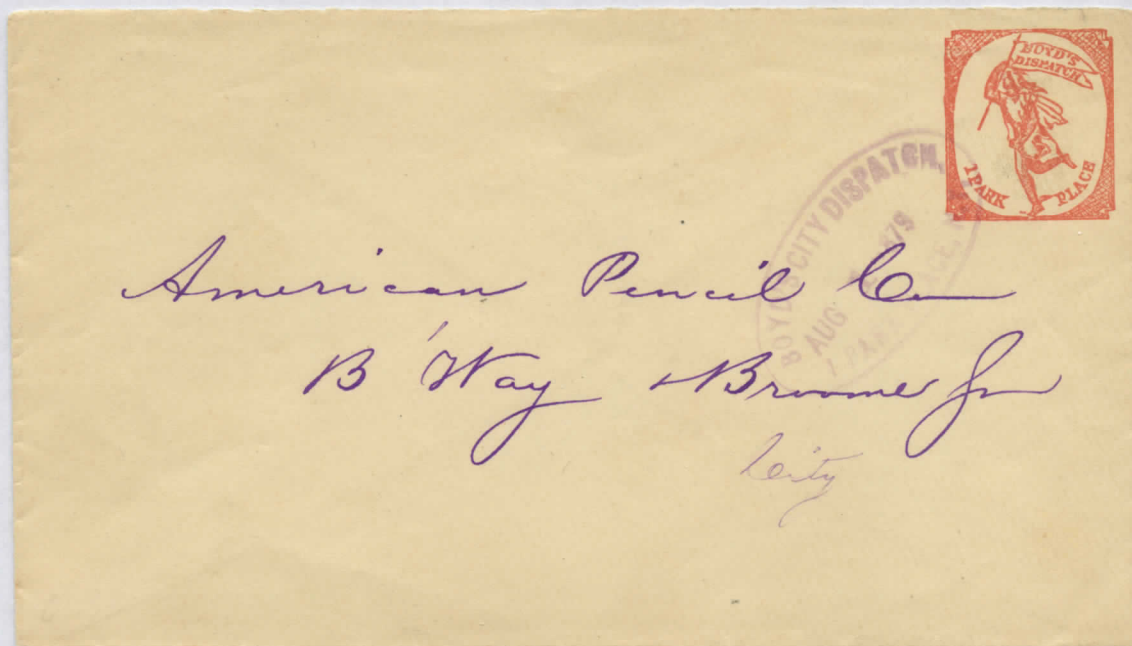 BOYD'S
DISPATCH
1 PARK PLACE
BOYD'S CITY DISPATCH,
AUG 1879
1 PARK PLACE,
American Pencil Co
B'Way & Broome
City